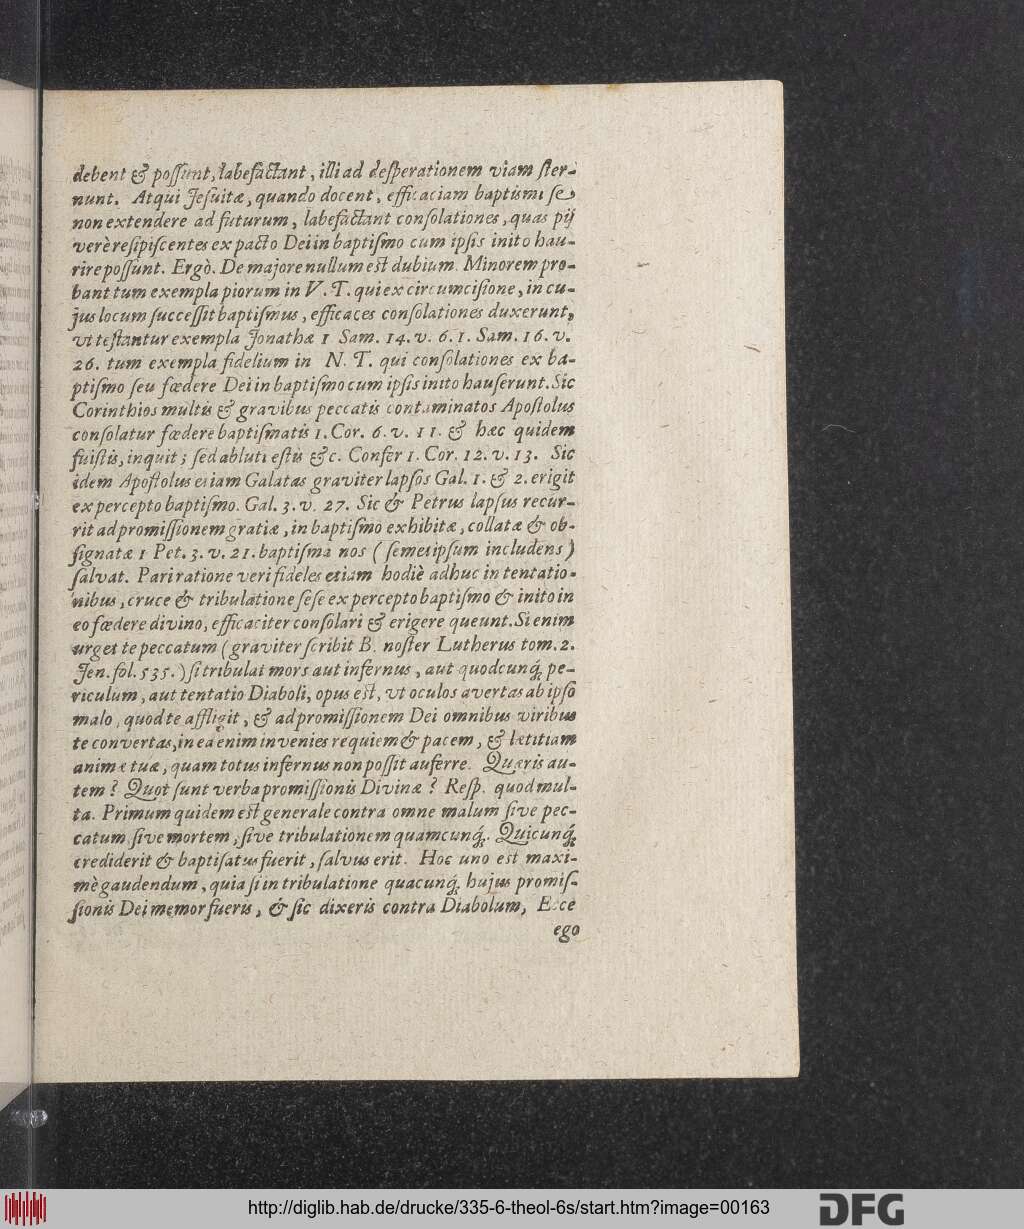 debent & poſſunt, labefactant, illi ad deſperationem viam ſter-
nunt. Atqui Jeſuitæ, quando docent, efficaciam baptismi ſe
non extendere ad futurum, labefactant conſolationes, quas pij
verè reſipiſcentes ex pacto Dei in baptiſmo cum ipſis inito hau-
rire poſſunt. Ergò. De majore nullum est dubium. Minorem pro-
bant tum exempla piorum in V. T. qui ex circumciſione, in cu-
jus locum ſucceſſit baptiſmus, efficaces conſolationes duxerunt,
vt teſtantur exempla Jonathæ 1 Sam. 14. v. 6. 1. Sam. 16. v.
26. tum exempla fidelium in N. T. qui conſolationes ex ba-
ptiſmo ſeu fœdere Dei in baptiſmo cum ipſis inito hauſerunt. Sic
Corinthios multis & gravibus peccatis contaminatos Apoſtolus
conſolatur fœdere baptiſmatis 1. Cor. 6. v. 11. & hæc quidem
fuiſtis, inquit; ſed abluti eſtis &c. Confer 1. Cor. 12. v. 13. Sic
idem Apoſtolus etiam Galatas graviter lapſos Gal. 1. & 2. erigit
ex percepto baptiſmo. Gal. 3. v. 27. Sic & Petrus lapſus recur-
rit ad promiſſionem gratiæ, in baptiſmo exhibitæ, collatæ & ob-
ſignatæ 1 Pet. 3. v. 21. baptiſma nos (ſemetipſum includens)
ſalvat. Pari ratione veri fideles etiam hodiè adhuc in tentatio-
nibus, cruce & tribulatione ſeſe ex percepto baptiſmo & inito in
eo fœdere divino, efficaciter conſolari & erigere queunt. Si enim
urget te peccatum (graviter ſcribit B. noſter Lutherus tom. 2.
Jen. fol. 535.) ſi tribulat mors aut infernus, aut quodcunq́; pe-
riculum, aut tentatio Diaboli, opus est, vt oculos avertas ab ipſo
malo, quod te affligit, & ad promiſſionem Dei omnibus viribus
te convertas, in ea enim invenies requiem & pacem, & lætitiam
animæ tuæ, quam totus infernus non poſſit auferre. Quæris au-
tem? Quot ſunt verba promiſſionis Divinæ? Reſp. quod mul-
ta. Primum quidem est generale contra omne malum ſive pec-
catum ſive mortem, ſive tribulationem quamcunq́;. Quicunq́;
crediderit & baptiſatus fuerit, ſalvus erit. Hoc uno est maxi-
mè gaudendum, quia ſi in tribulatione quacunq́; hujus promiſ-
ſionis Dei memor fueris, & ſic dixeris contra Diabolum, Ecce
ego
http://diglib.hab.de/drucke/335-6-theol-6s/start.htm?image=00163
DFG